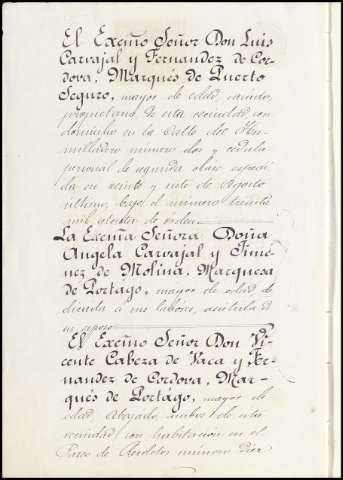 El Excmo Señor Don Luis
Carvajal y Fernandez de Cor-
dova, Marqués de Puerto
Seguro, mayor de edad, casado,
propietario, de esta vecindad con
domicilio en la Calle del Hu-
milladero número dos y cédula
personal de segunda clase espedi-
da en veinte y siete de Agosto
último, bajo el número treinta
mil de órden.
La Excma Señora Doña
Angela Carvajal y Jimé-
nez de Molina, Marquesa
de Portago, mayor de edad de-
dicada a sus labores, asistida de
su esposo
El Excmo Señor Don Vi-
cente Cabeza de Vaca y Fer-
nandez de Cordova, Mar-
qués de Portágo, mayor de
edad, Abogado, ambos de esta
vecindad, con habitacion en el
Paseo de Recoletos número diez